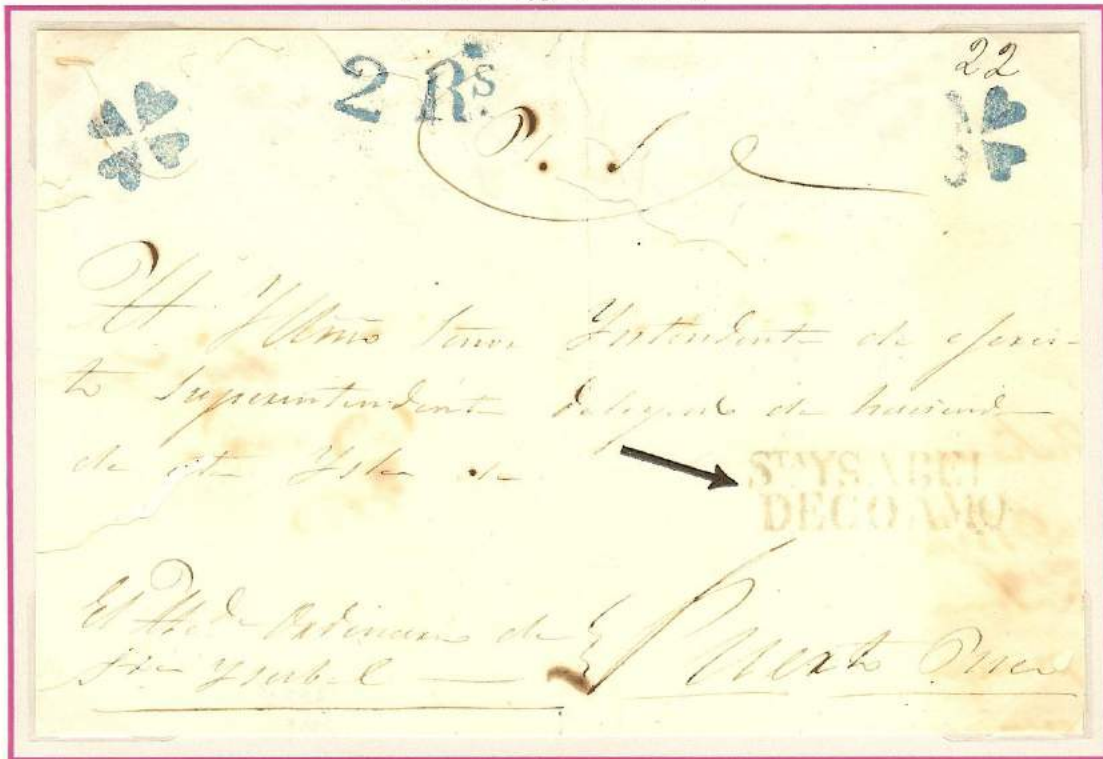 22
2 Rs.
Al Yllmo Señor Yntendente de exerci-
to Superintendente delegado de hacienda
de esta Ysla de
STA YSABEL
DE COAMO
El Alcde Ordinario de
Sta Ysabel — Puerto Rico